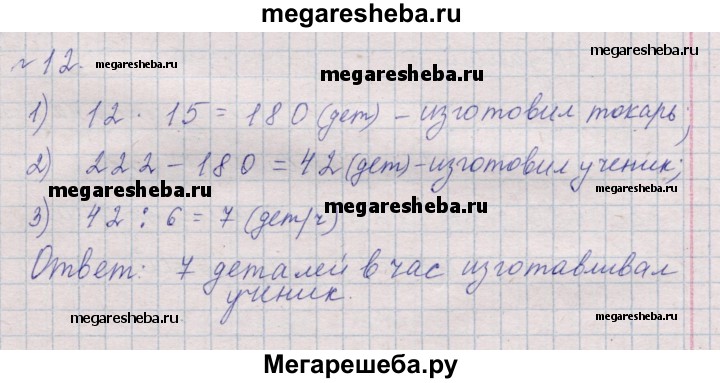 megaresheba.ru
megaresheba.ru
№12. megaresheba.ru
megaresheba.ru
1) 12 · 15 = 180 (дет) - изготовил токарь;
2) 222 - 180 = 42 (дет) - изготовил ученик;
megaresheba.ru megaresheba.ru
3) 42 : 6 = 7 (дет/ч)
Ответ: 7 деталей в час изготавливал
ученик.
megaresheba.ru megaresheba.ru
Мегарешеба.ру